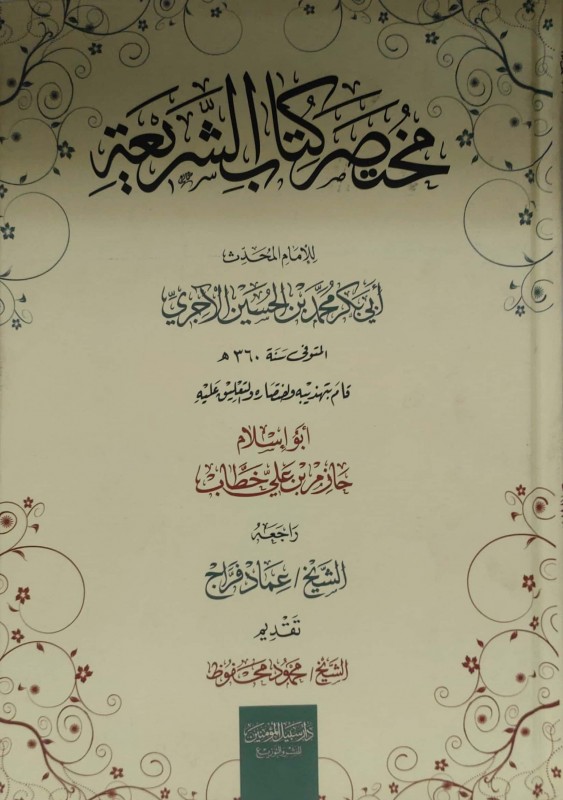 مختصر كتاب الشريعة
للإمام المحدث
أبي بكر محمد بن الحسين الآجري
المتوفى سنة ٣٦٠ هـ
قام بتهذيبه واختصاره والتعليق عليه
أبو إسلام
حازم بن علي خطاب
راجعه
الشيخ / عماد فراج
تقديم
الشيخ / محمود محفوظ
دار سبيل المؤمنين
للنشر والتوزيع